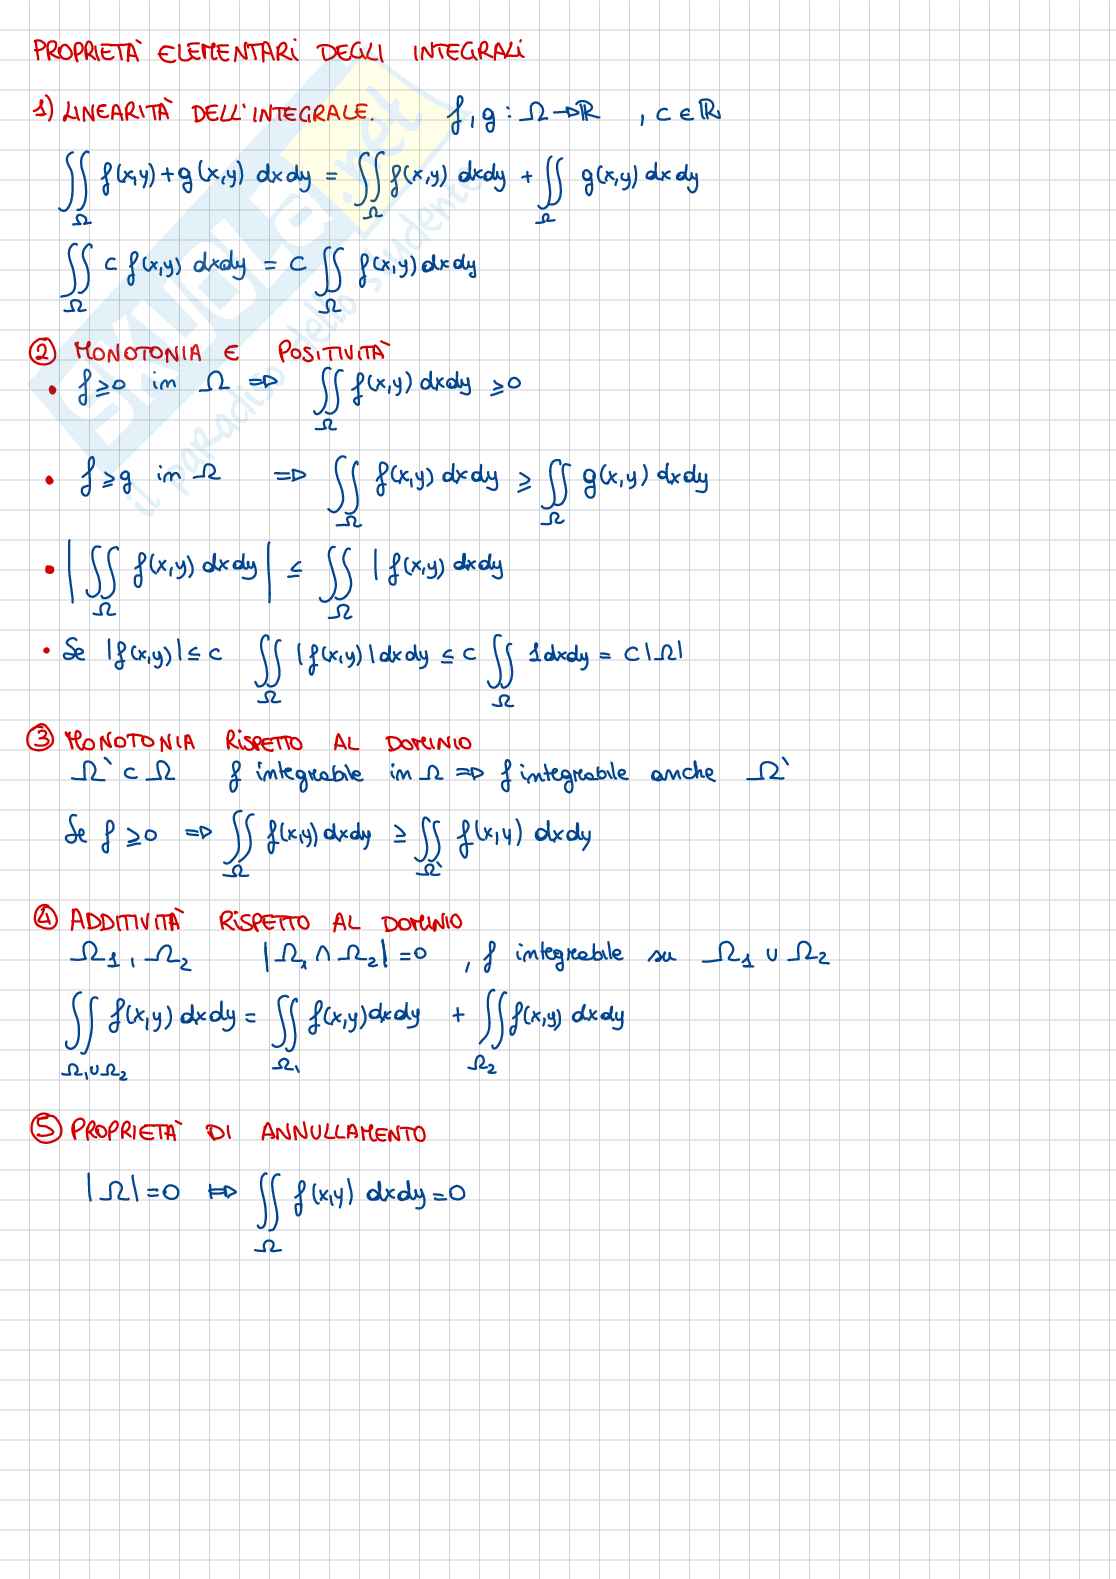 PROPRIETÀ ELEMENTARI DEGLI INTEGRALI
1) LINEARITÀ DELL'INTEGRALE. f, g : Ω → ℝ , c ∈ ℝ
∬_Ω f(x,y) + g(x,y) dxdy = ∬_Ω f(x,y) dxdy + ∬_Ω g(x,y) dxdy
∬_Ω c f(x,y) dxdy = c ∬_Ω f(x,y) dxdy
② MONOTONIA E POSITIVITÀ
• f ≥ 0 in Ω ⇒ ∬_Ω f(x,y) dxdy ≥ 0
• f ≥ g in Ω ⇒ ∬_Ω f(x,y) dxdy ≥ ∬_Ω g(x,y) dxdy
• |∬_Ω f(x,y) dxdy| ≤ ∬_Ω |f(x,y) dxdy
• Se |f(x,y)| ≤ c ∬_Ω |f(x,y)| dxdy ≤ c ∬_Ω 1 dxdy = c|Ω|
③ MONOTONIA RISPETTO AL DOMINIO
Ω` ⊂ Ω f integrabile in Ω ⇒ f integrabile anche Ω`
Se f ≥ 0 ⇒ ∬_Ω f(x,y) dxdy ≥ ∬_Ω` f(x,y) dxdy
④ ADDITIVITÀ RISPETTO AL DOMINIO
Ω1, Ω2 |Ω1 ∩ Ω2| = 0 , f integrabile su Ω1 ∪ Ω2
∬_Ω1∪Ω2 f(x,y) dxdy = ∬_Ω1 f(x,y) dxdy + ∬_Ω2 f(x,y) dxdy
⑤ PROPRIETÀ DI ANNULLAMENTO
|Ω| = 0 ⇒ ∬_Ω f(x,y) dxdy = 0
SKUOLA.net
il paradiso dello studente